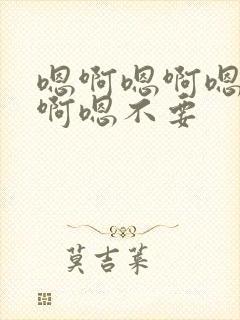 嗯啊嗯啊嗯
啊嗯不要
莫吉莱